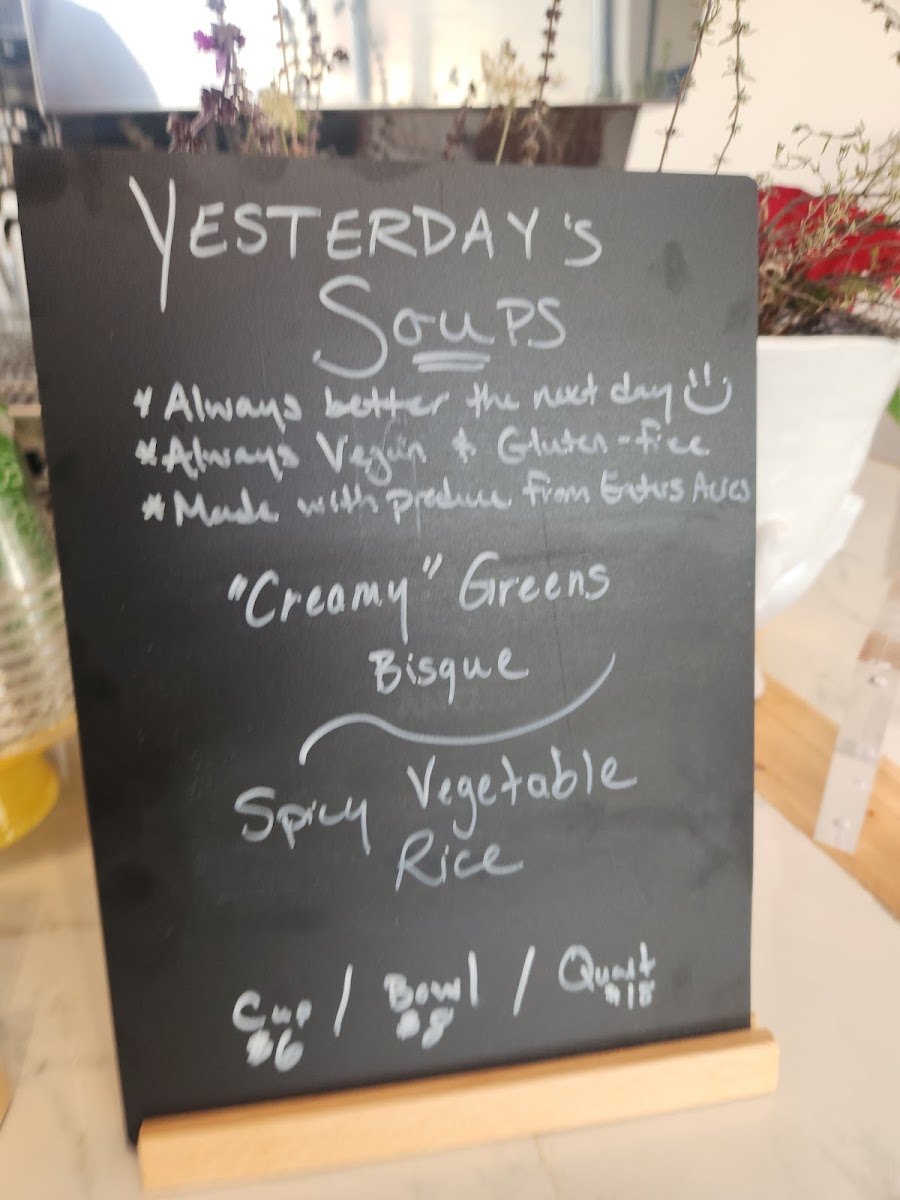 YESTERDAY'S
SOUPS
* Always better the next day
* Always Vegan & Gluten-free
* Made with produce from Acres
"Creamy" Greens
Bisque
Spicy Vegetable
Rice
Cup / Bowl / Quart
$6 $8 $18